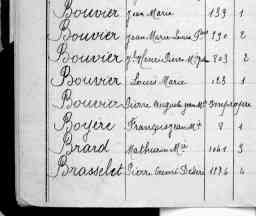 Bouvier Jean Marie 139 1
Bouvier Jean Marie Louis 190 2
Bouvier Henri Pierre 803 2
Bouvier Louis Marie 128 1
Bouvier Pierre Auguste
Boyère François Jean M 8 1
Brard Mathurin Mie 1041 3
Brasselet Pierre Désiré 1196 4